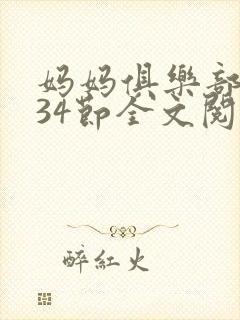 妈妈俱樂部
34節全文閱
醉紅火